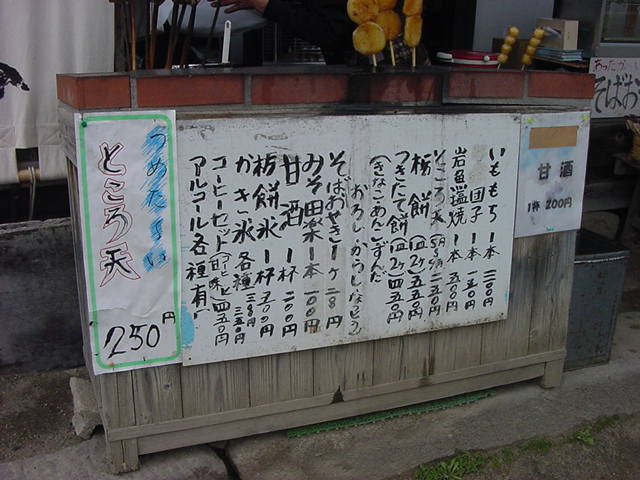 いももち 一本 二〇〇円
団子 一本 一五〇円
岩魚塩焼 一本 五〇〇円
ところ天
栃餅 一皿2ケ 四五〇円
つきたて餅 一皿2ケ 四五〇円
(きなこ・あんこ・ずんだ
おろし・からし・なっとう)
そばおせき 1ケ 二八〇円
みそ田楽 一本 一〇〇円
甘酒 一杯 二〇〇円
栃餅氷 一杯 五〇〇円
かき氷 各種
コーヒーセット 四五〇円
アルコール各種有
つめたーい
ところ天
250円
甘酒
1杯 200円
そばお